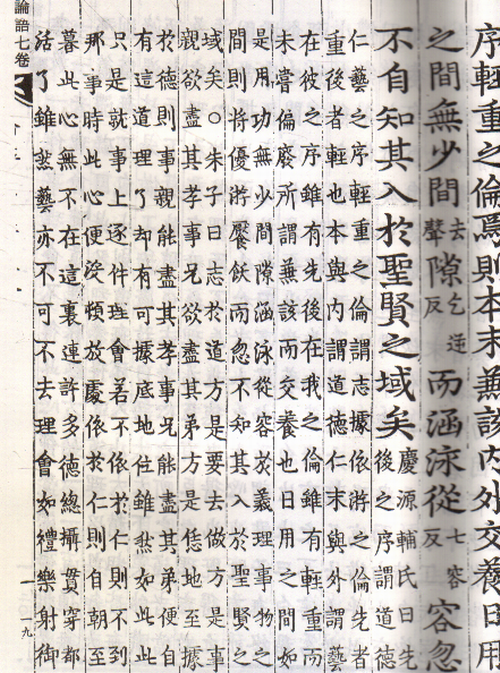 序輕重之倫焉則本末兼該內外交養日用
之間無少間去聲隙乞逆反而涵泳從七容反容忽
不自知其入於聖賢之域矣慶源輔氏曰先
後之序謂道德
仁藝之序輕重之倫謂志據依游之倫先者
重後者輕也本與內謂道德仁末與外謂藝
在彼之序雖有先後在我之倫雖有輕重而
未嘗偏廢所謂兼該而交養也日用之間如
是用功無少間隙涵泳從容於義理事物之
間則將優游饜飫而忽不知其入於聖賢之
域矣○朱子曰志於道方是要去做方是事
親欲盡其孝事兄欲盡其弟方是恁地至據
於德則事親能盡其孝事兄能盡其弟便自
有這道理了却有可據底地位雖然如此此
只是就事上逐件理會若不依於仁則不到
那事時此心便沒頓放處依於仁則自朝至
暮此心無不在這裏連許多德總攝貫穿都
活了雖然藝亦不可不去理會如禮樂射御
論語七卷
一九